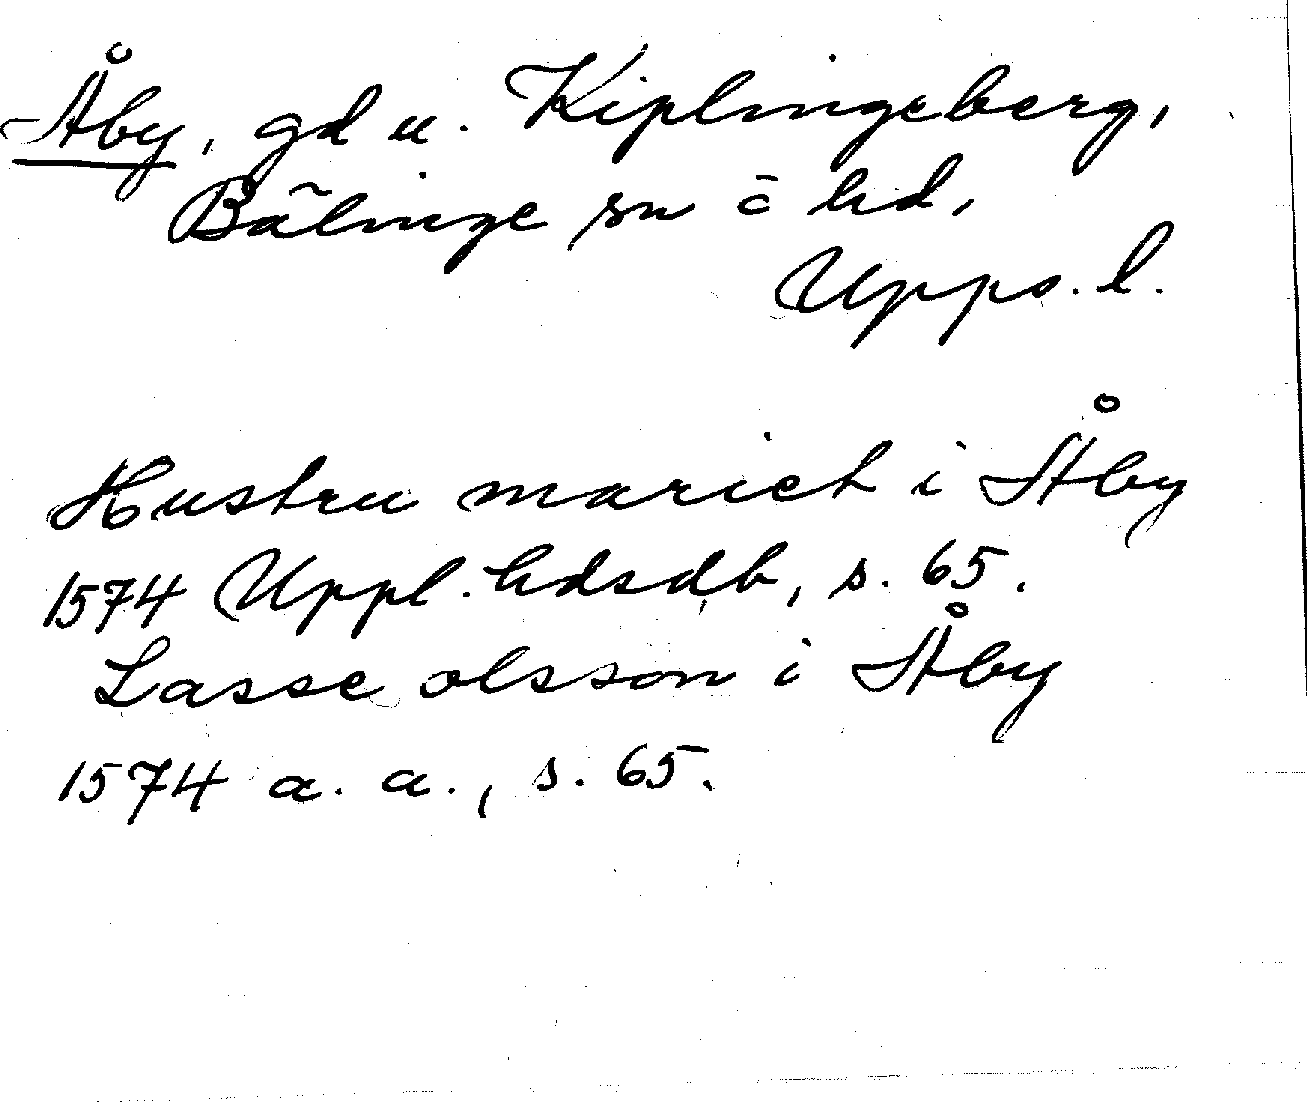 Åby, gd u. Kiplingeberg,
Bälinge sn o hd,
Upps. l.
Hustru mariet i Åby
1574 Uppl. hdsdb, s. 65.
Lasse olsson i Åby
1574 a. a., s. 65.